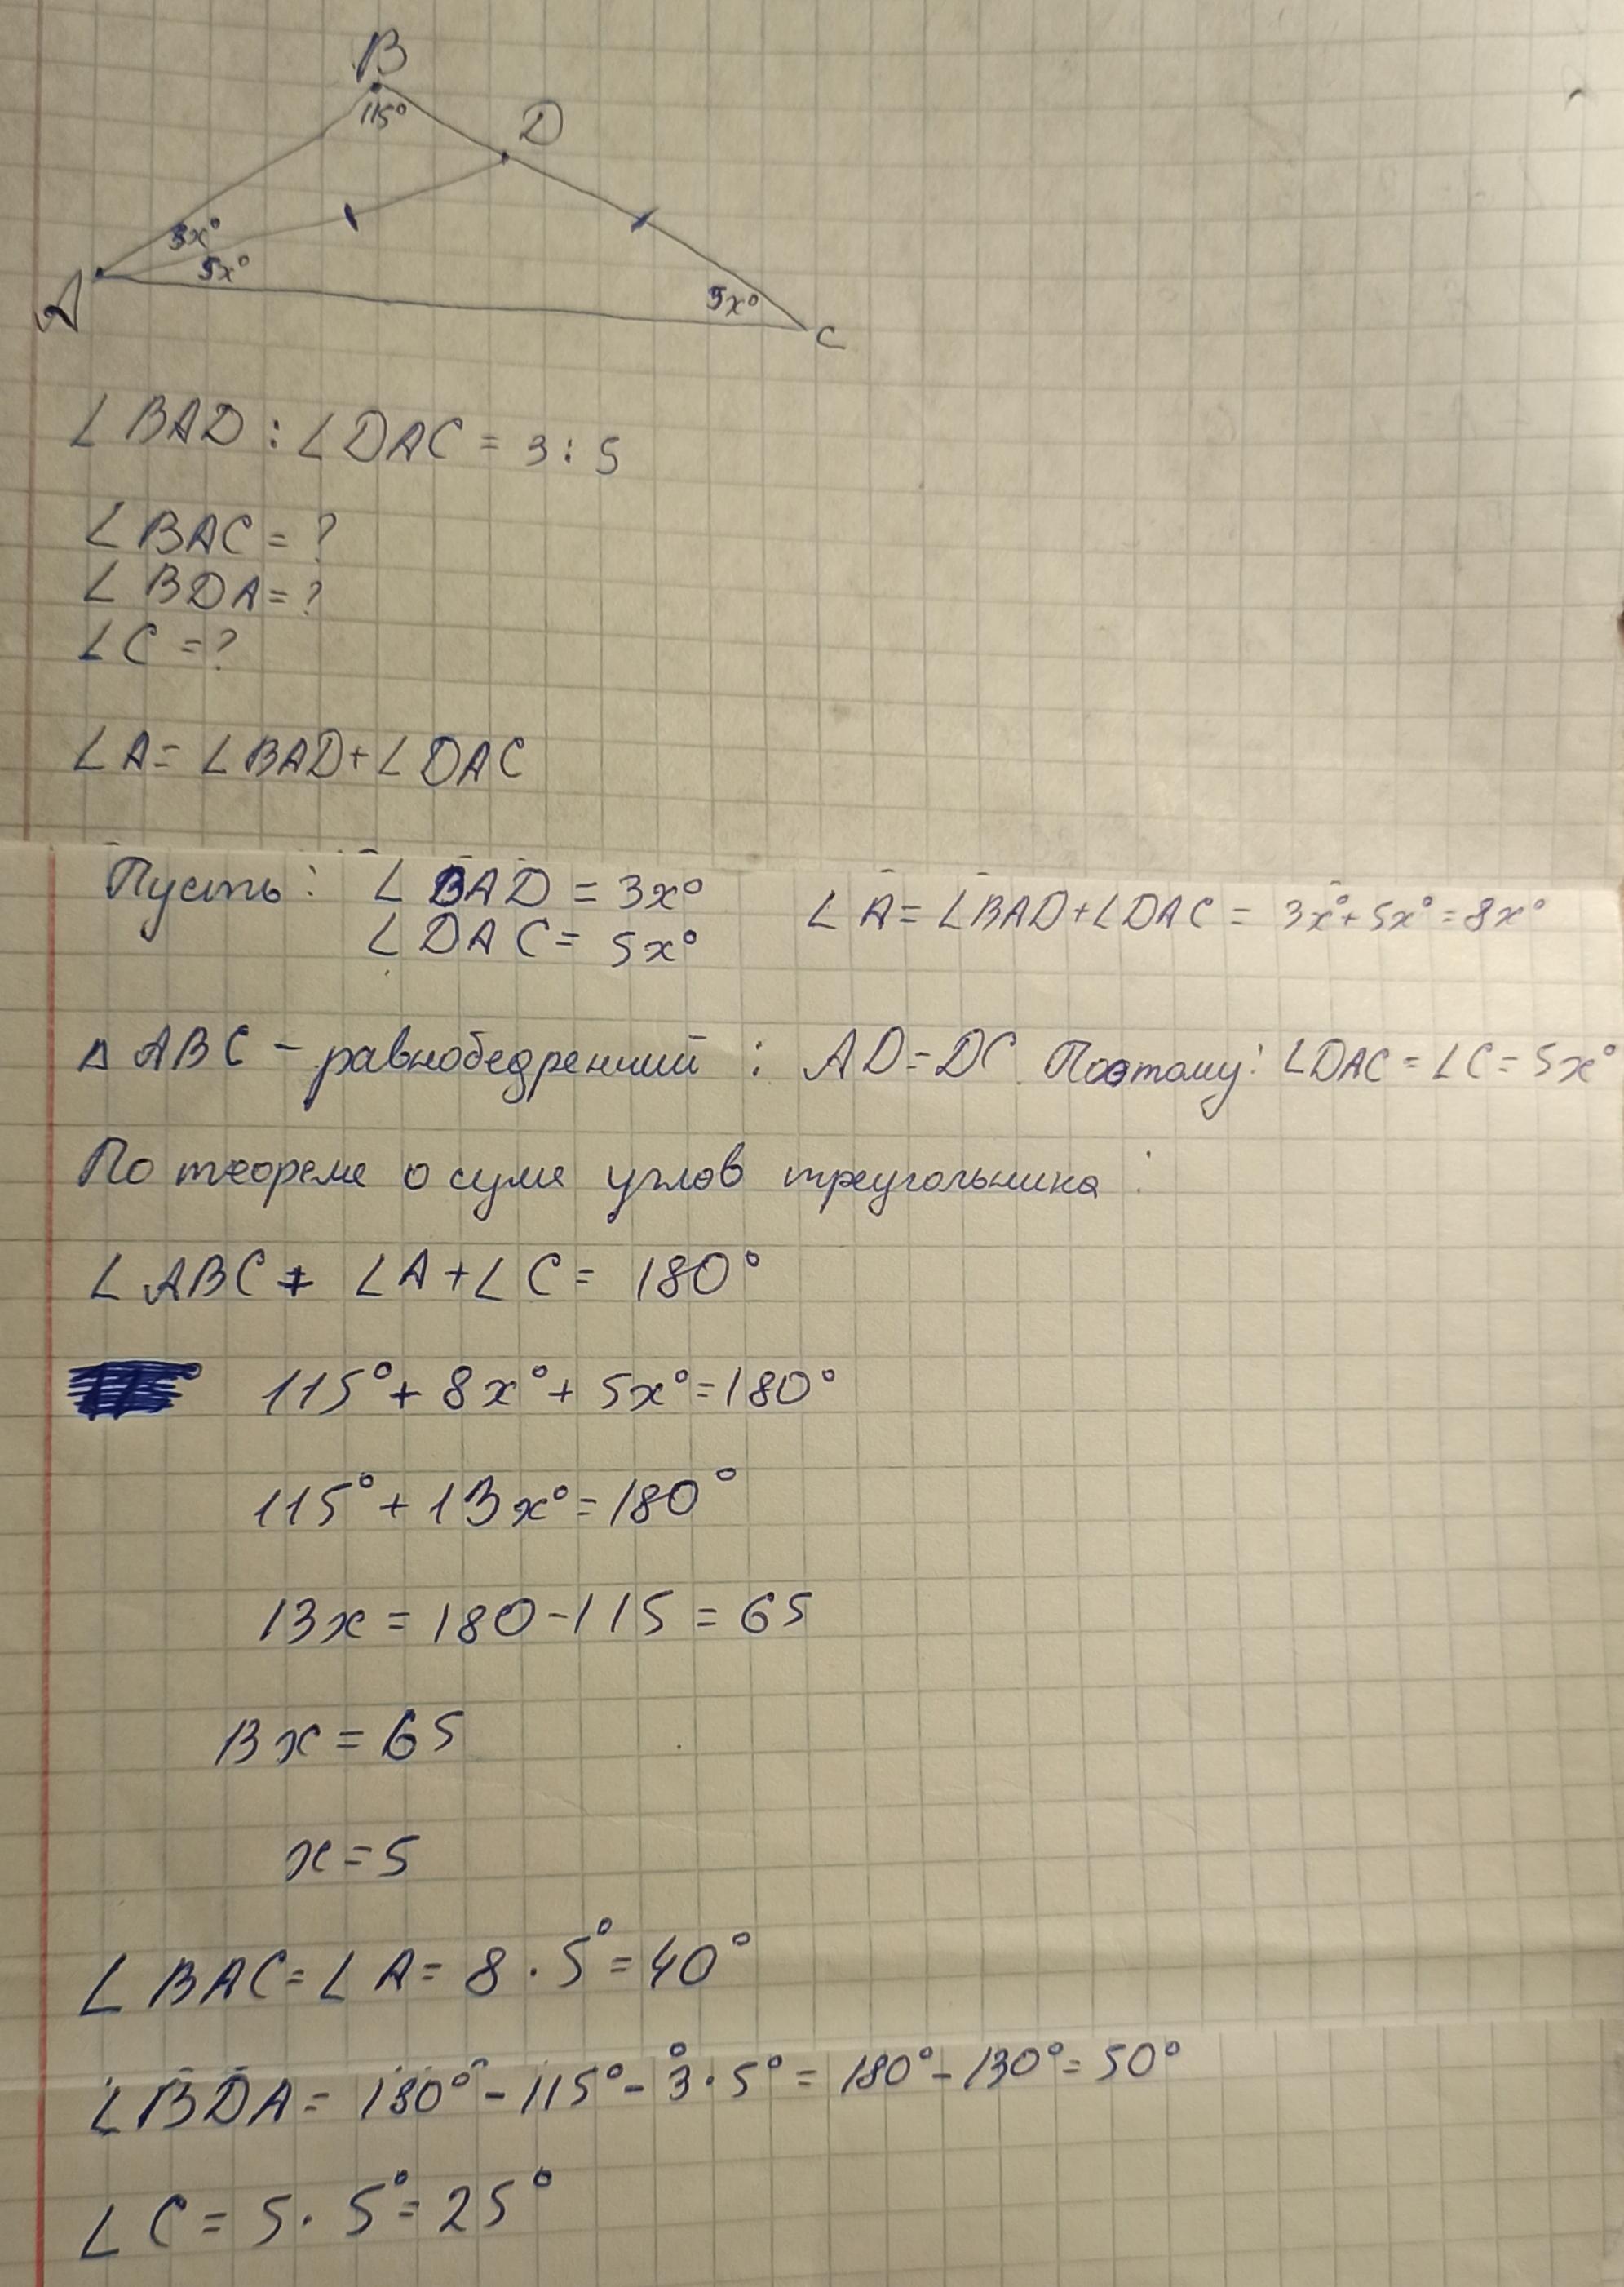 B
115°
D
3x°
5x°
5x°
A
C
∠BAD : ∠DAC = 3 : 5
∠BAC = ?
∠BDA = ?
∠C = ?
∠A = ∠BAD + ∠DAC
Пусть : ∠BAD = 3x° ∠A = ∠BAD + ∠DAC = 3x° + 5x° = 8x°
∠DAC = 5x°
△ABC – равнобедренний : AD = DC. Поэтому : ∠DAC = ∠C = 5x°
По теореме о суме углов треугольника :
∠ABC + ∠A + ∠C = 180°
115° + 8x° + 5x° = 180°
115° + 13x° = 180°
13x = 180 - 115 = 65
13x = 65
x = 5
∠BAC = ∠A = 8 · 5° = 40°
∠BDA = 180° - 115° - 3° · 5° = 180° - 130° = 50°
∠C = 5 · 5° = 25°